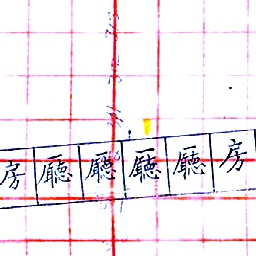 房廳廳廳廳房